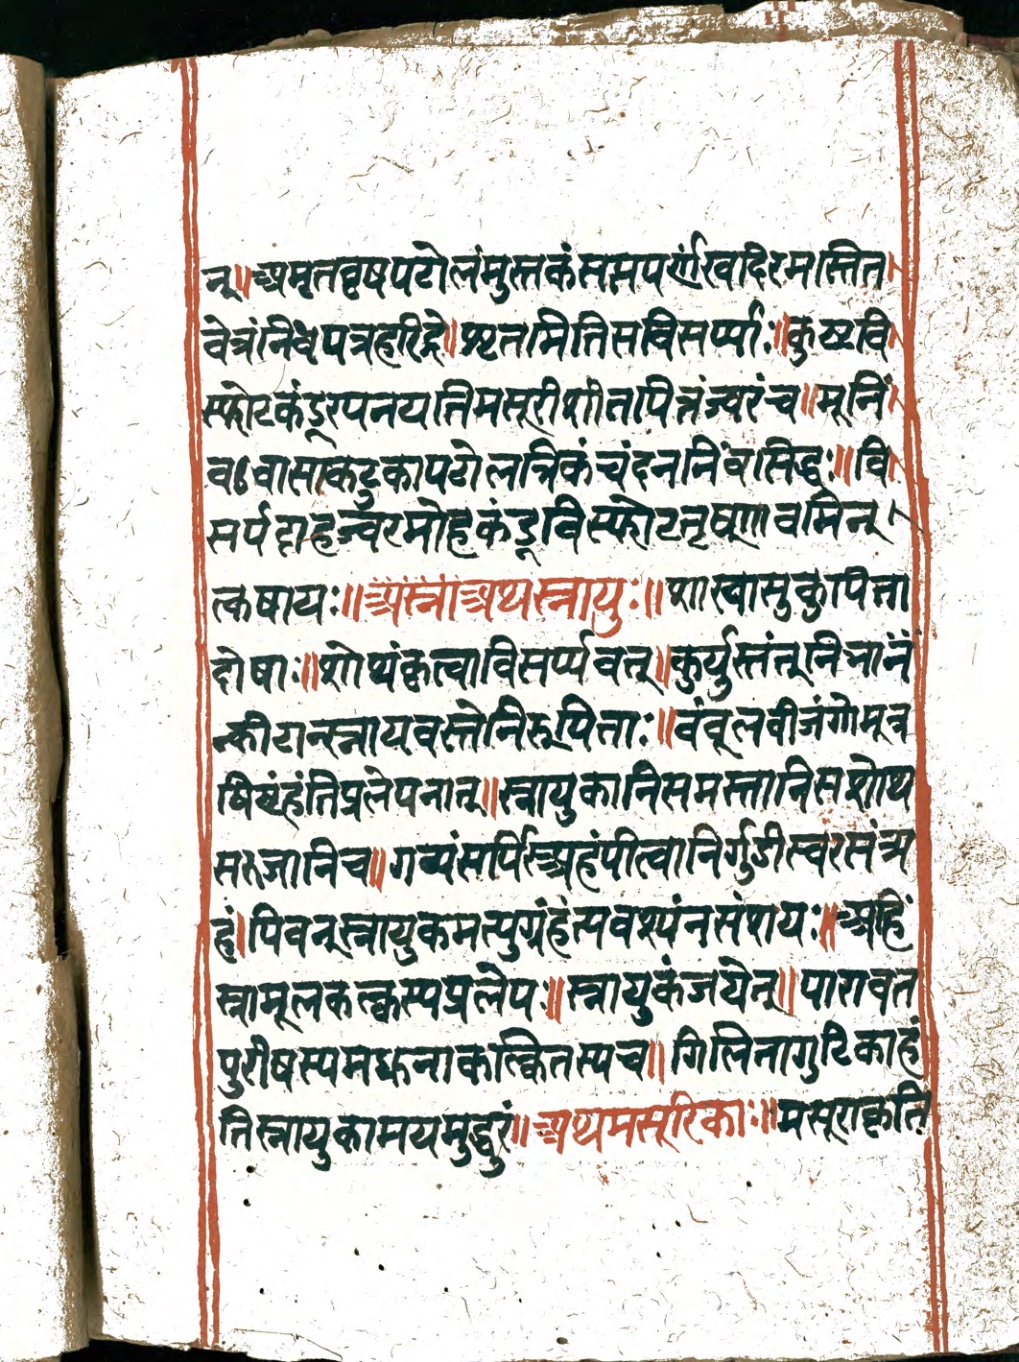 न्॥अमृतवृषपटोलंमुस्तकंसप्तपर्णंखदिरमसित
वेत्रंनिंबपत्रंहरिद्रे॥शृतमितिसविसर्प्पाः॥कुष्टवि
स्फोटकंडूरपनयतिमसूरीशीतपित्तंज्वरंच॥भूनिं
वऽवासाकटुकापटोलत्रिकंचंदननिंवसिद्धः॥वि
सर्पदाहज्वरमोहकंडूविस्फोटतृष्णावमिन्
त्कषायः॥अस्नाअथस्नायुः॥शाखासुकुपिता
दोषाः॥शोथंकृत्वाविसर्प्पवत्॥कुर्युस्तंतूनिनांनं
न्कीटान्स्नायवस्तेनिरूपिताः॥वंवूलवीजंगोमूत्र
पिष्टंहंतिप्रलेपनात्॥स्नायुकानिसमस्तानिसशोथ
सरुजानिच॥गव्यंसर्पिस्त्र्यहंपीत्वानिर्गुडीस्वरसंत्र्य
हं।पिवन्स्नायुकमत्युग्रंहंत्यवश्यंनसंशयः॥अहिं
स्नामूलकल्कस्यप्रलेपः॥स्नायुकंजयेत्॥पारावत
पुरीषस्यमध्नाकल्कितस्यच॥गिलितागुटिकाहं
तिस्नायुकामयमुद्धुरं॥अथमसूरिकाः॥मसूराकृति